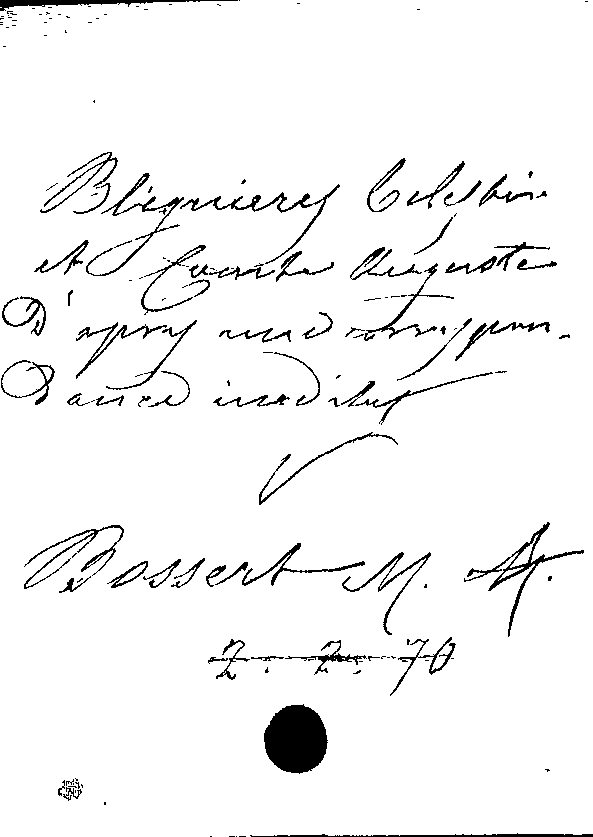 Blignieres Celestin
et Comte Auguste
D'apres une correspon-
dance inedite
Bossert M. A.
2. 2. 70